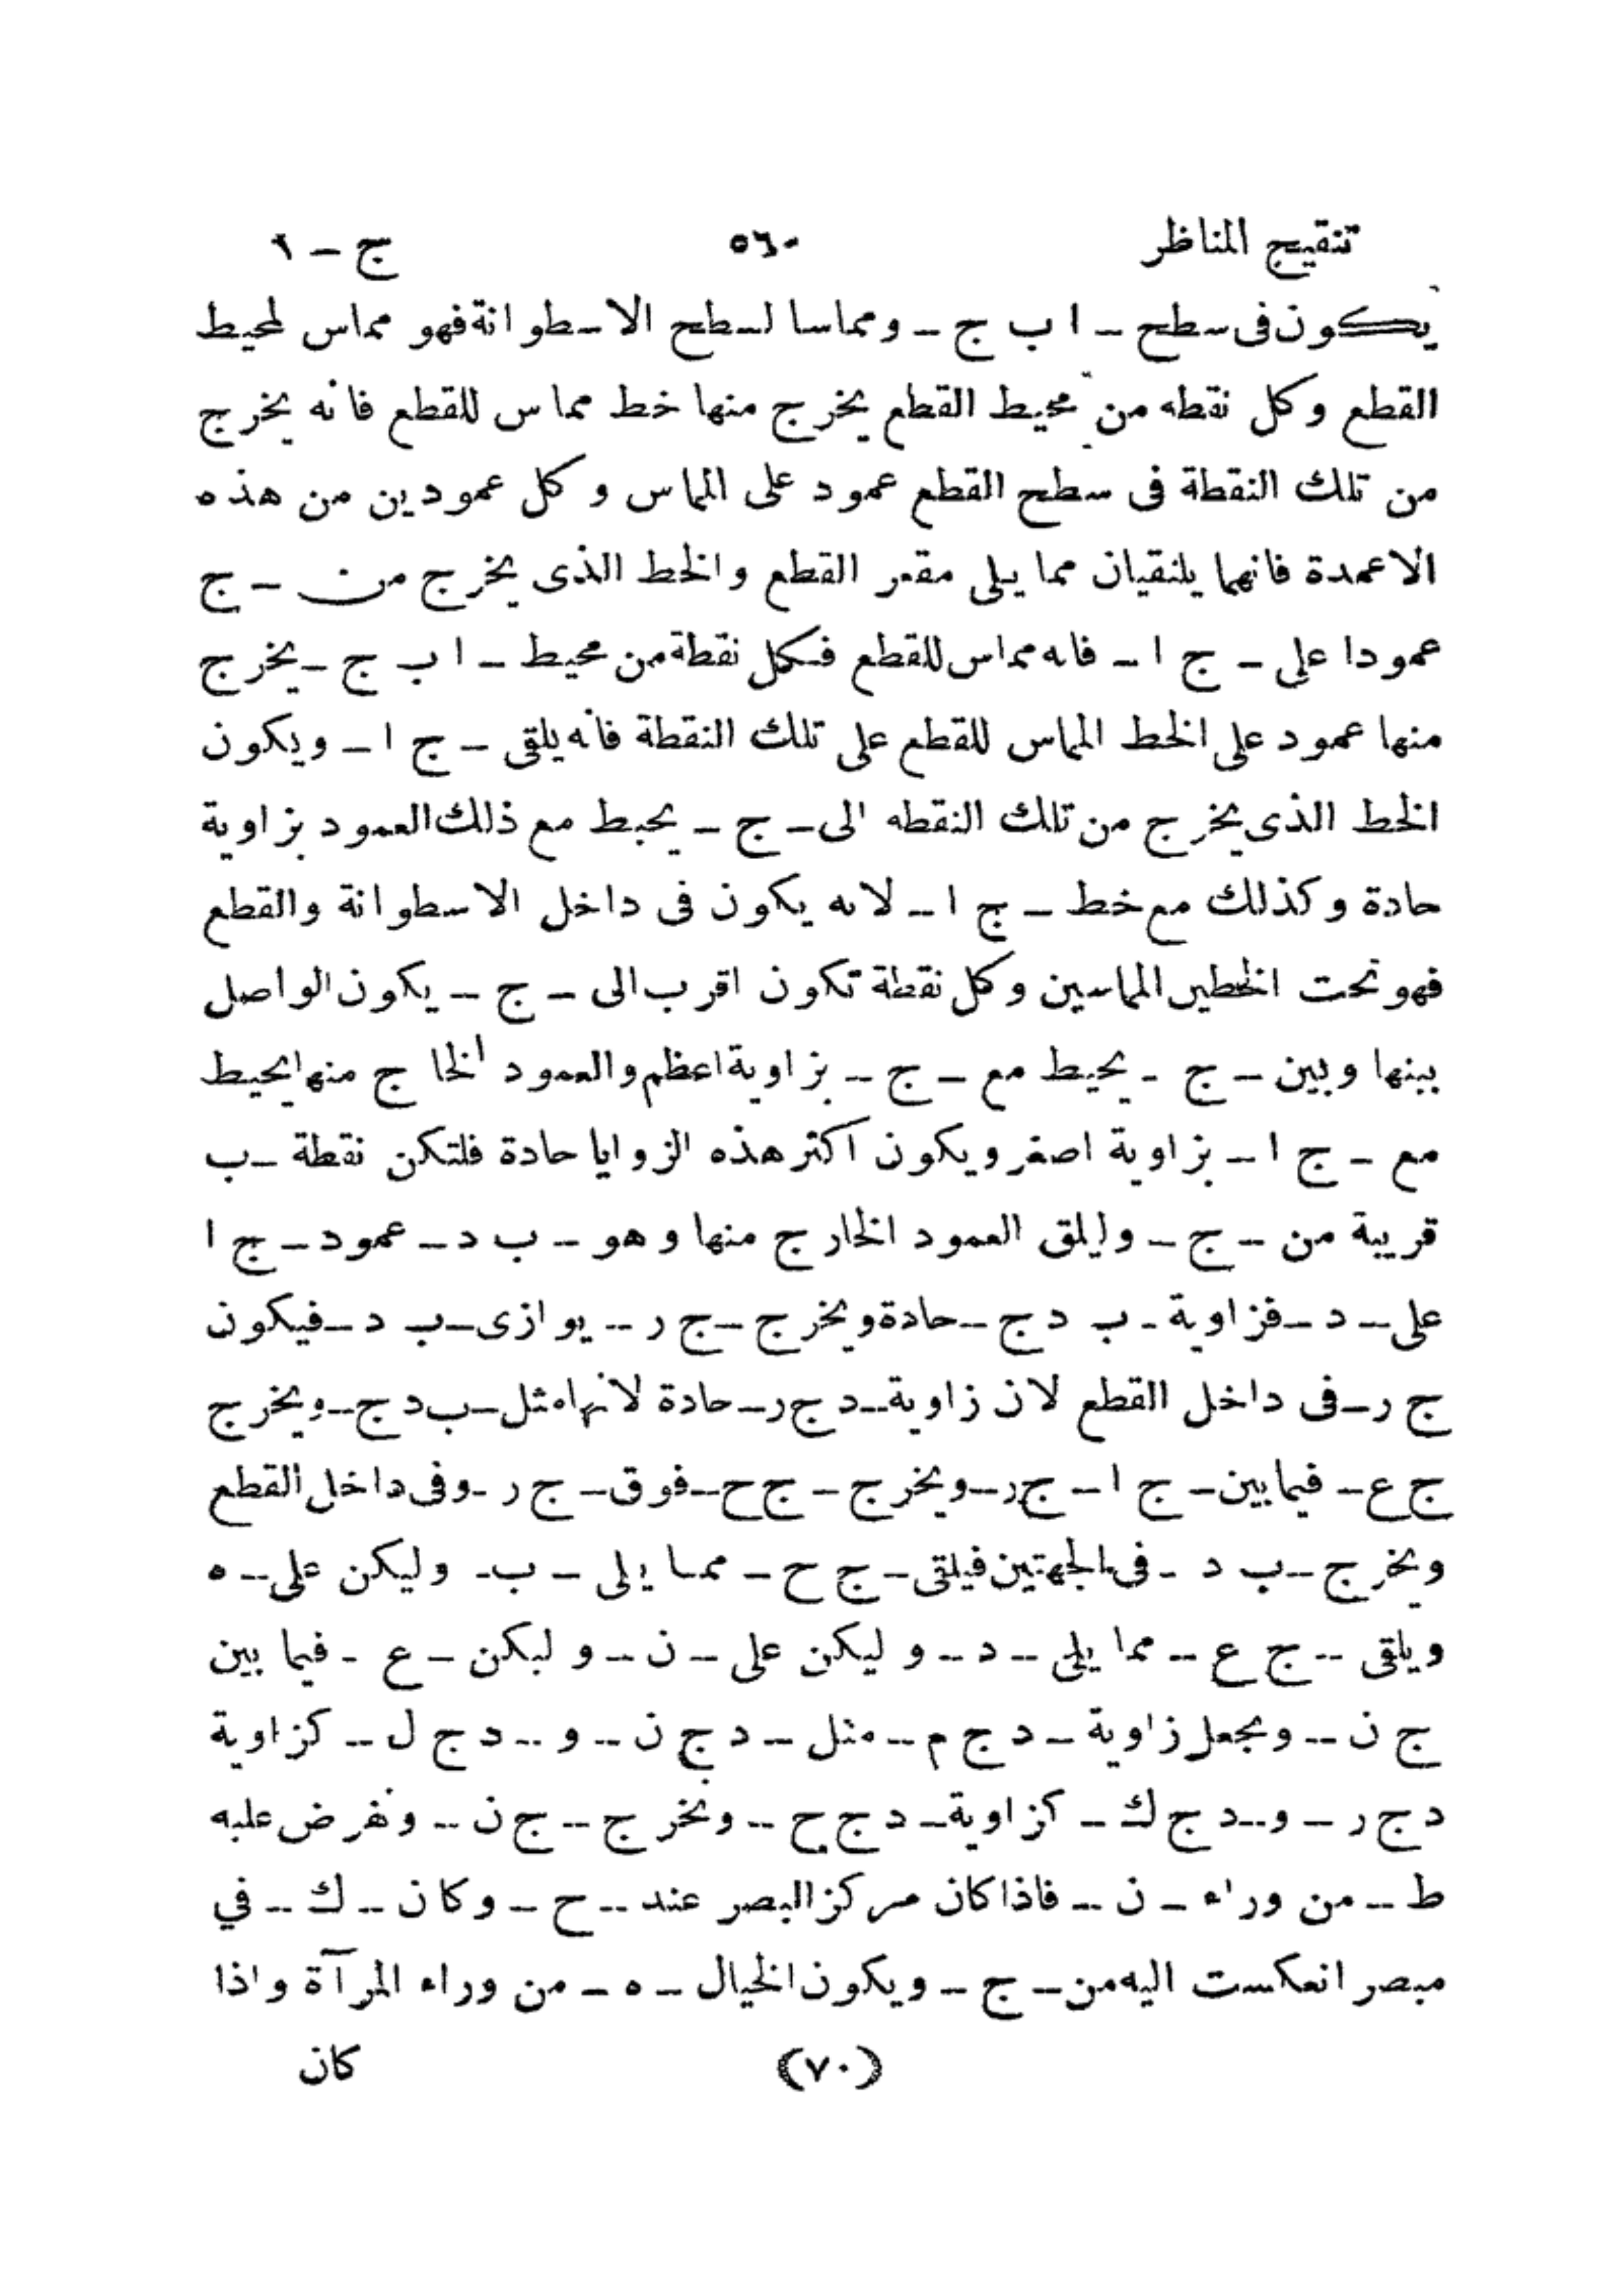 تنقيح المناظر ٥٦٠ ج – ١
يكون فى سطح – ا ب ج – ومماسا لسطح الاسطوانة فهو مماس لمحيط
القطع وكل نقطه من محيط القطع يخرج منها خط مماس للقطع فانه يخرج
من تلك النقطة فى سطح القطع عمود على المماس وكل عمودين من هذه
الاعمدة فانهما يلتقيان مما يلى مقعر القطع والخط الذى يخرج من – ج
عمودا على – ج ا – فانه مماس للقطع فكل نقطة من محيط – ا ب ج – يخرج
منها عمود على الخط المماس للقطع على تلك النقطة فانه يلقى – ج ا – ويكون
الخط الذى يخرج من تلك النقطه الى – ج – يحيط مع ذلك العمود بزاوية
حادة وكذلك مع خط – ج ا – لانه يكون فى داخل الاسطوانة والقطع
فهو تحت الخطين المماسين وكل نقطة تكون اقرب الى – ج – يكون الواصل
بينها وبين – ج – يحيط مع – ج – بزاوية اعظم والعمود الخا ج منها يحيط
مع – ج ا – بزاوية اصغر ويكون اكثر هذه الزوايا حادة فلتكن نقطة – ب
قريبة من – ج – وليلق العمود الخارج منها وهو – ب د – عمود – ج ا
على – د – فزاوية – ب د ج – حادة ويخرج – ج ر – يوازى – ب د – فيكون
ج ر – فى داخل القطع لان زاوية – د ج ر – حادة لانها مثل – ب د ج – ويخرج
ج ع – فيما بين – ج ا – ج ر – ويخرج – ج ح – فوق – ج ر – وفى داخل القطع
ويخرج – ب د – فى الجهتين فيلقى – ج ح – مما يلى – ب – وليكن على – ه
ويلقى – ج ع – مما يلى – د – وليكن على – ن – وليكن – ع – فيما بين
ج ن – ونجعل زاوية – د ج م – مثل – د ج ن – و – د ج ل – كزاوية
د ج ر – و – د ج ك – كزاوية – د ج ح – ونخرج – ج ن – ونفرض عليه
ط – من وراء – ن – فاذا كان مركز البصر عند – ح – وكان – ك – في
مبصر انعكست اليه من – ج – ويكون الخيال – ه – من وراء المرآة واذا
(٧٠) كان